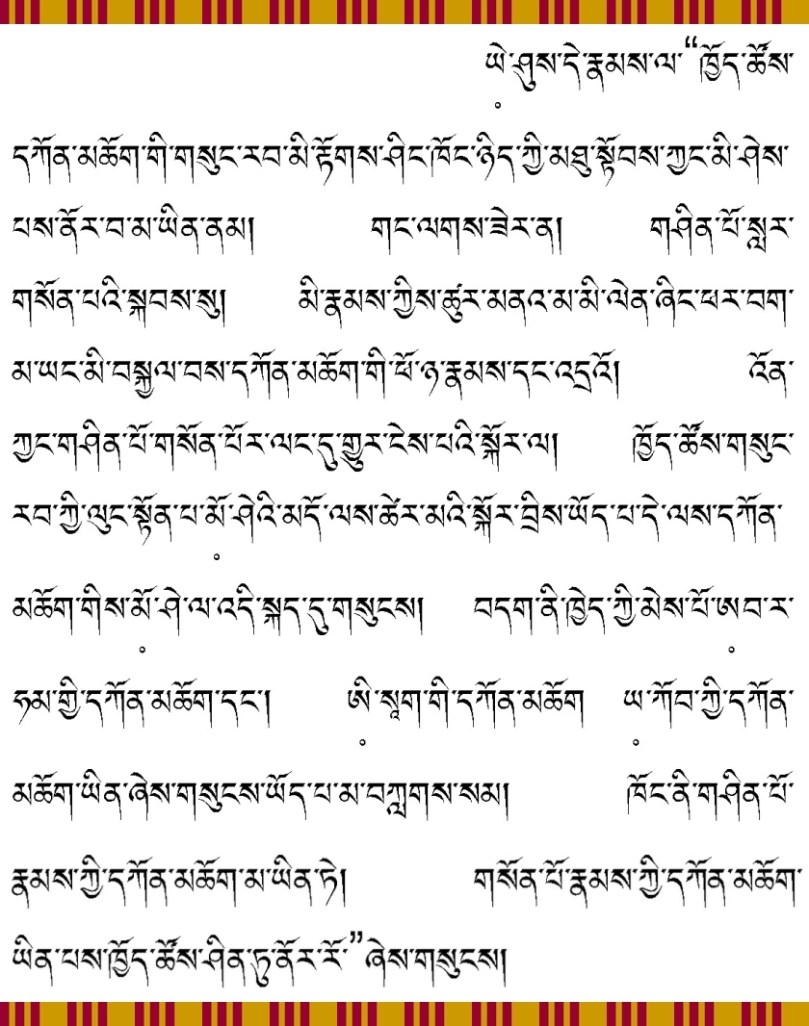 ཡེ༷་ཤུས་དེ་རྣམས་ལ་“ཁྱོད་ཚོས་
དཀོན་མཆོག་གི་གསུང་རབ་མི་རྟོགས་ཤིང་ཁོང་ཉིད་ཀྱི་མཐུ་སྟོབས་ཀྱང་མི་ཤེས་
པས་ནོར་བ་མ་ཡིན་ནམ། གང་ལགས་ཟེར་ན། གཤིན་པོ་སླར་
གསོན་པའི་སྐབས་སུ། མི་རྣམས་ཀྱིས་ཚུར་མནའ་མ་མི་ལེན་ཞིང་ཕར་བག་
མ་ཡང་མི་བསྐྱལ་བས་དཀོན་མཆོག་གི་ཕོ་ཉ་རྣམས་དང་འདྲའོ། འོན་
ཀྱང་གཤིན་པོ་གསོན་པོར་ལང་དུ་གྱུར་ངེས་པའི་སྐོར་ལ། ཁྱོད་ཚོས་གསུང་
རབ་ཀྱི་ལུང་སྟོན་པ་མོ༷་ཤེའི་མདོ་ལས་ཚེར་མའི་སྐོར་བྲིས་ཡོད་པ་དེ་ལས་དཀོན་
མཆོག་གིས་མོ༷་ཤེ་ལ་འདི་སྐད་དུ་གསུངས། བདག་ནི་ཁྱེད་ཀྱི་མེས་པོ་ཨ༷བ་ར་
ཧམ་གྱི་དཀོན་མཆོག་དང་། ཨི༷་སཱག་གི་དཀོན་མཆོག ཡ༷་ཀོབ་ཀྱི་དཀོན་
མཆོག་ཡིན་ཞེས་གསུངས་ཡོད་པ་མ་བཀླགས་སམ། ཁོང་ནི་གཤིན་པོ་
རྣམས་ཀྱི་དཀོན་མཆོག་མ་ཡིན་ཏེ། གསོན་པོ་རྣམས་ཀྱི་དཀོན་མཆོག་
ཡིན་པས་ཁྱོད་ཚོས་ཤིན་ཏུ་ནོར་རོ་”ཞེས་གསུངས།